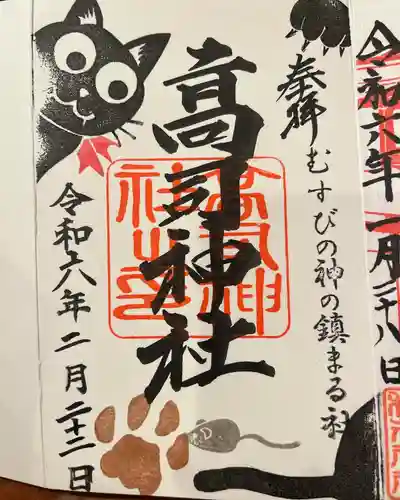 令和六年一月二十八日
奉拝 むすびの神の鎮まる社
高司神社
高司神社之印
令和六年二月二十二日